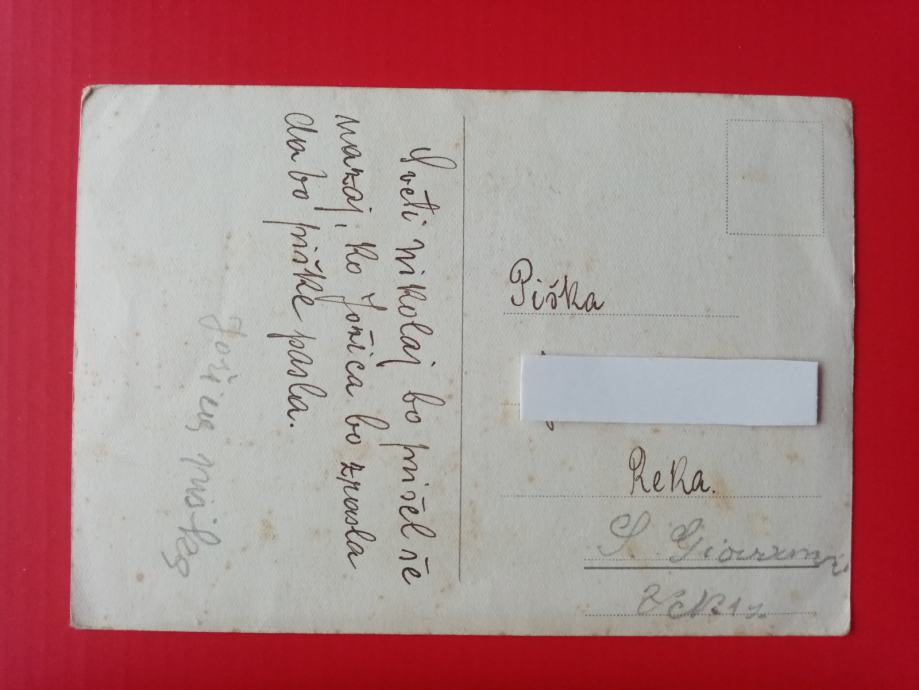 Sveti nikolaj bo prišel še
nazaj, ko Jožica bo zrasla
da bo piške pasla.
Piška
Reka.
S. Giovanni